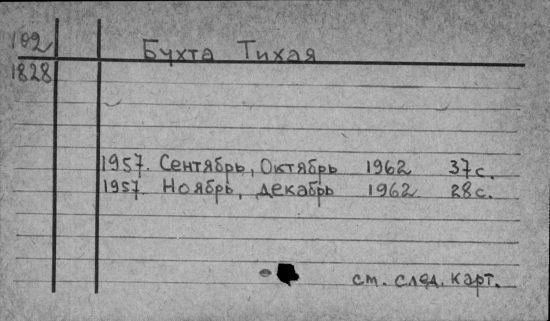 192 Бухта Тихая
1828
1957. Сентябрь, Октябрь 1962 37с.
1957. Ноябрь, декабрь 1962 28с.
см. след. карт.